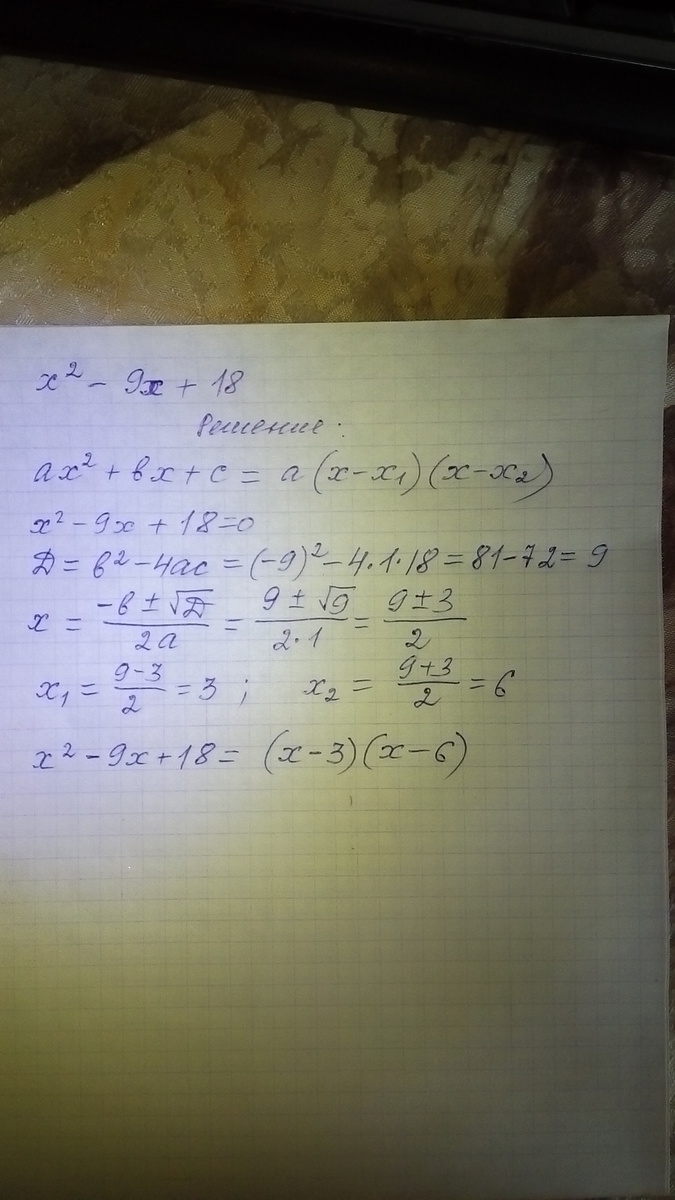 x² - 9x + 18
Решение:
ax² + bx + c = a(x-x₁)(x-x₂)
x² - 9x + 18 = 0
Д = b² - 4ac = (-9)² - 4·1·18 = 81 - 72 = 9
x = (-b ± √Д)/(2a) = (9 ± √9)/(2·1) = (9 ± 3)/2
x₁ = (9-3)/2 = 3 ; x₂ = (9+3)/2 = 6
x² - 9x + 18 = (x-3)(x-6)